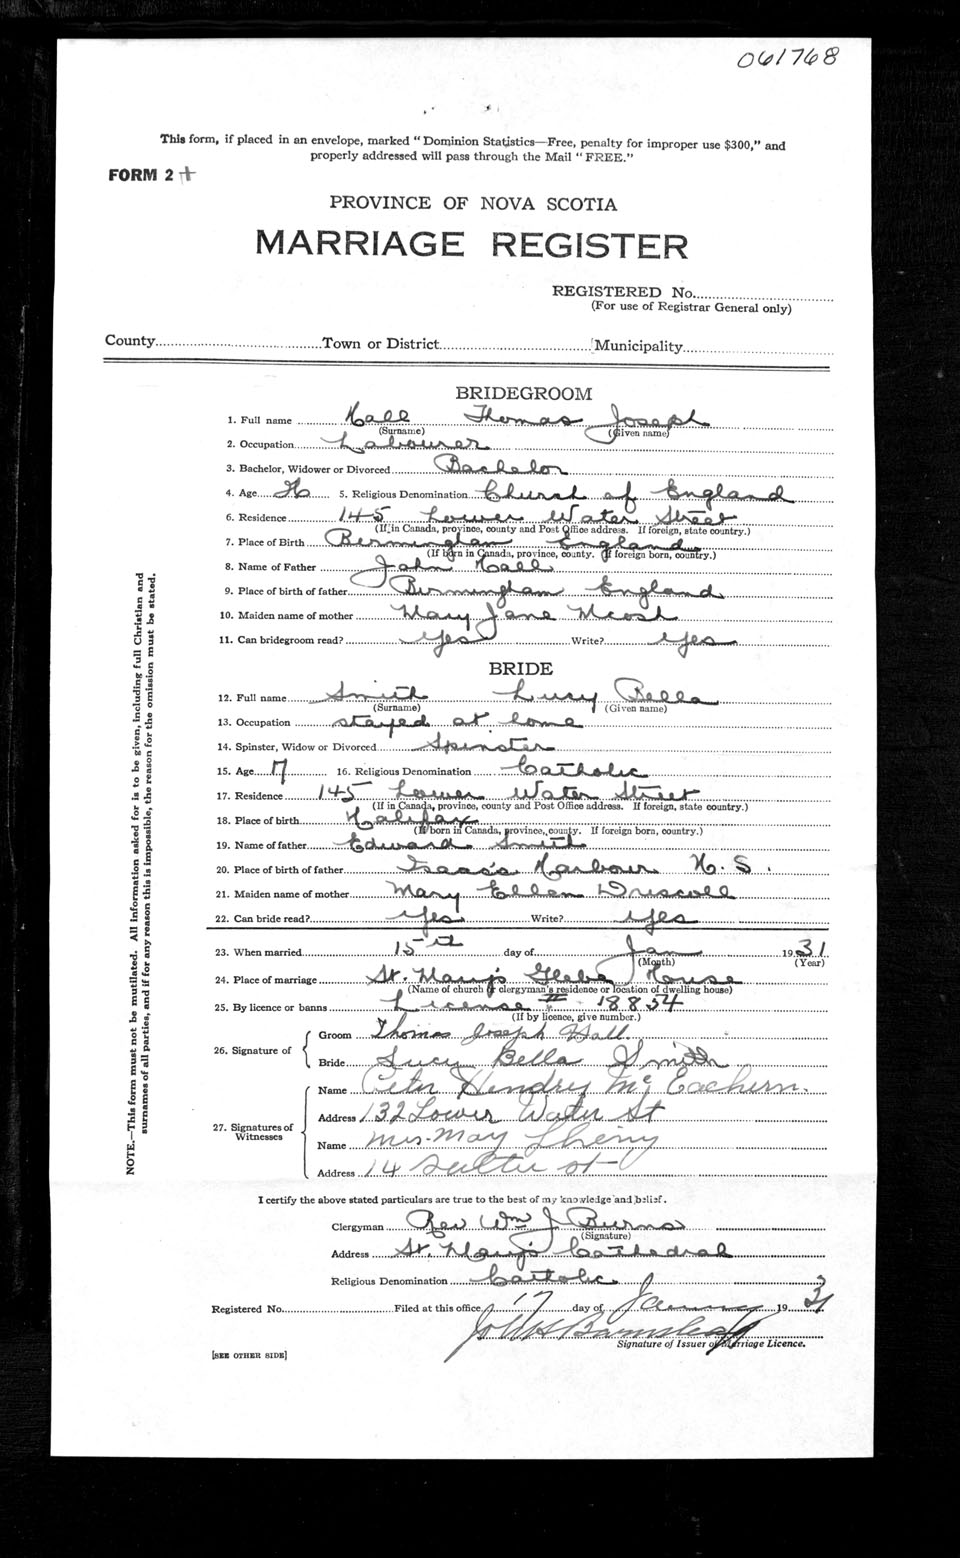 061768
This form, if placed in an envelope, marked "Dominion Statistics—Free, penalty for improper use $300," and
properly addressed will pass through the Mail "FREE."
FORM 2
PROVINCE OF NOVA SCOTIA
MARRIAGE REGISTER
REGISTERED No.
(For use of Registrar General only)
County Town or District Municipality
BRIDEGROOM
1. Full name Hall Thomas Joseph
(Surname) (Given name)
2. Occupation Labourer
3. Bachelor, Widower or Divorced Bachelor
4. Age 5. Religious Denomination Church of England
6. Residence 145 Lower Water Street
(If in Canada, province, county and Post Office address. If foreign, state country.)
7. Place of Birth Birmingham England
(If born in Canada, province, county. If foreign born, country.)
8. Name of Father John Hall
9. Place of birth of father Birmingham England
10. Maiden name of mother Mary Jane
11. Can bridegroom read? Yes Write? Yes
BRIDE
12. Full name Smith Lucy Bella
(Surname) (Given name)
13. Occupation stayed at home
14. Spinster, Widow or Divorced Spinster
15. Age 17 16. Religious Denomination Catholic
17. Residence 145 Lower Water Street
(If in Canada, province, county and Post Office address. If foreign, state country.)
18. Place of birth Halifax
(If born in Canada, province, county. If foreign born, country.)
19. Name of father Edward Smith
20. Place of birth of father Isaac's Harbour N.S.
21. Maiden name of mother Mary Ellen Driscoll
22. Can bride read? Yes Write? Yes
23. When married 15th day of Jan 1931
(Month) (Year)
24. Place of marriage St. Mary's Glebe House
(Name of church or clergyman's residence or location of dwelling house)
25. By licence or banns License # 18854
(If by licence, give number.)
26. Signature of Groom Thomas Joseph Hall
Bride Lucy Bella Smith
27. Signatures of Witnesses Name Peter Hendry McEachern
Address 132 Lower Water St
Name Mrs. May
Address 14 Salter St
I certify the above stated particulars are true to the best of my knowledge and belief.
Clergyman Rev Wm J Burns
(Signature)
Address St. Mary's Cathedral
Religious Denomination Catholic
Registered No. Filed at this office 17 day of January 1931
Signature of Issuer of Marriage Licence.
[SEE OTHER SIDE]
NOTE.—This form must not be mutilated. All information asked for is to be given, including full Christian and
surnames of all parties, and if for any reason this is impossible, the reason for the omission must be stated.